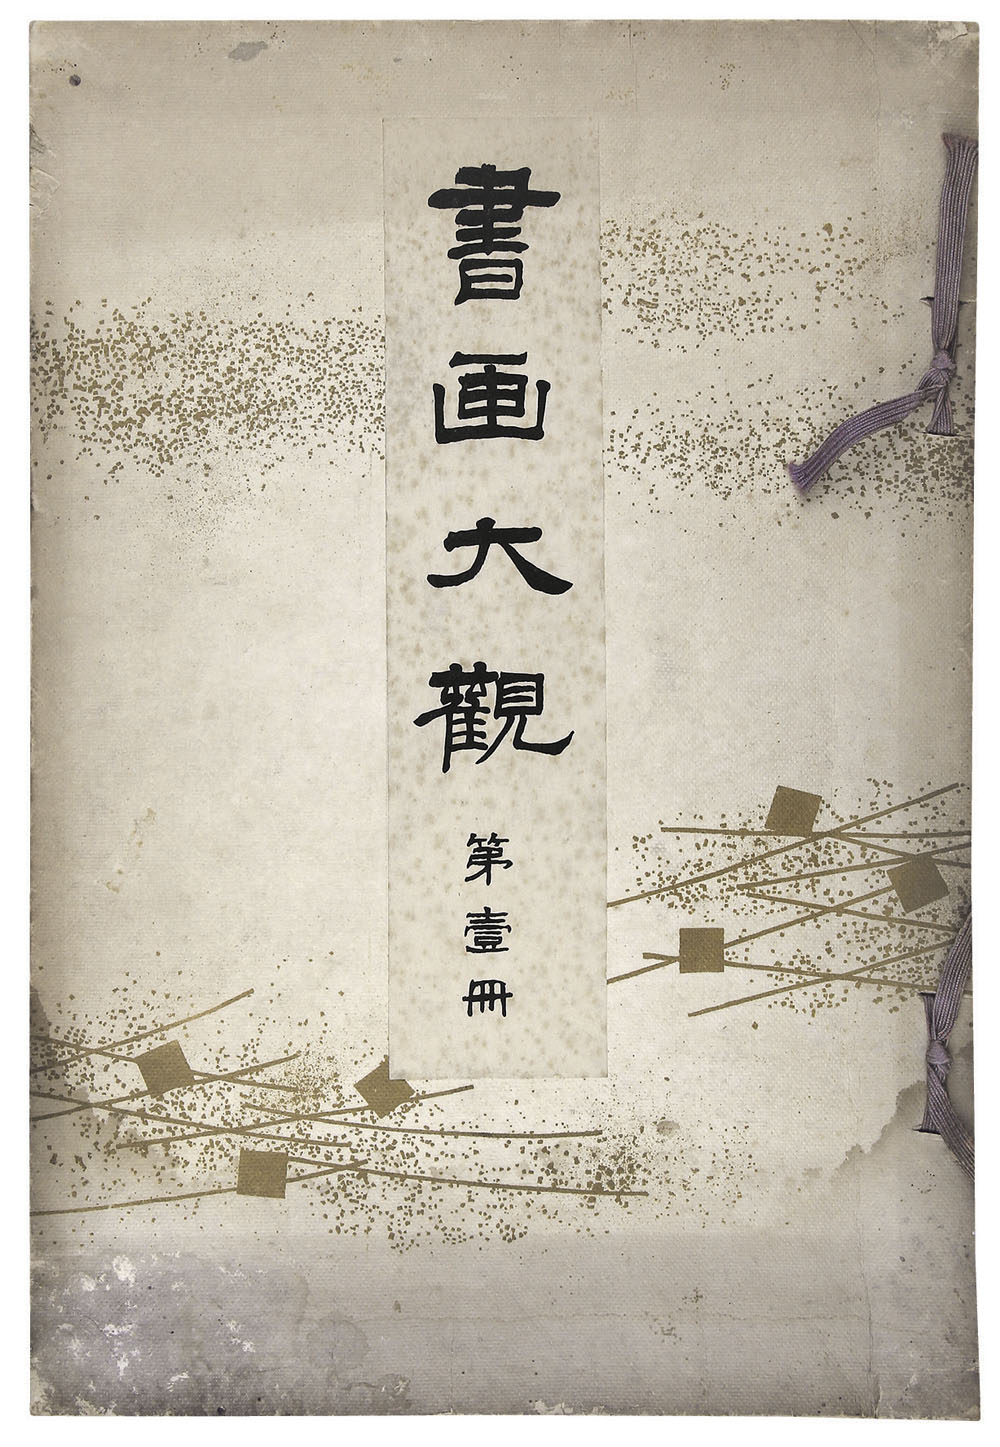 書画大觀
第壹冊